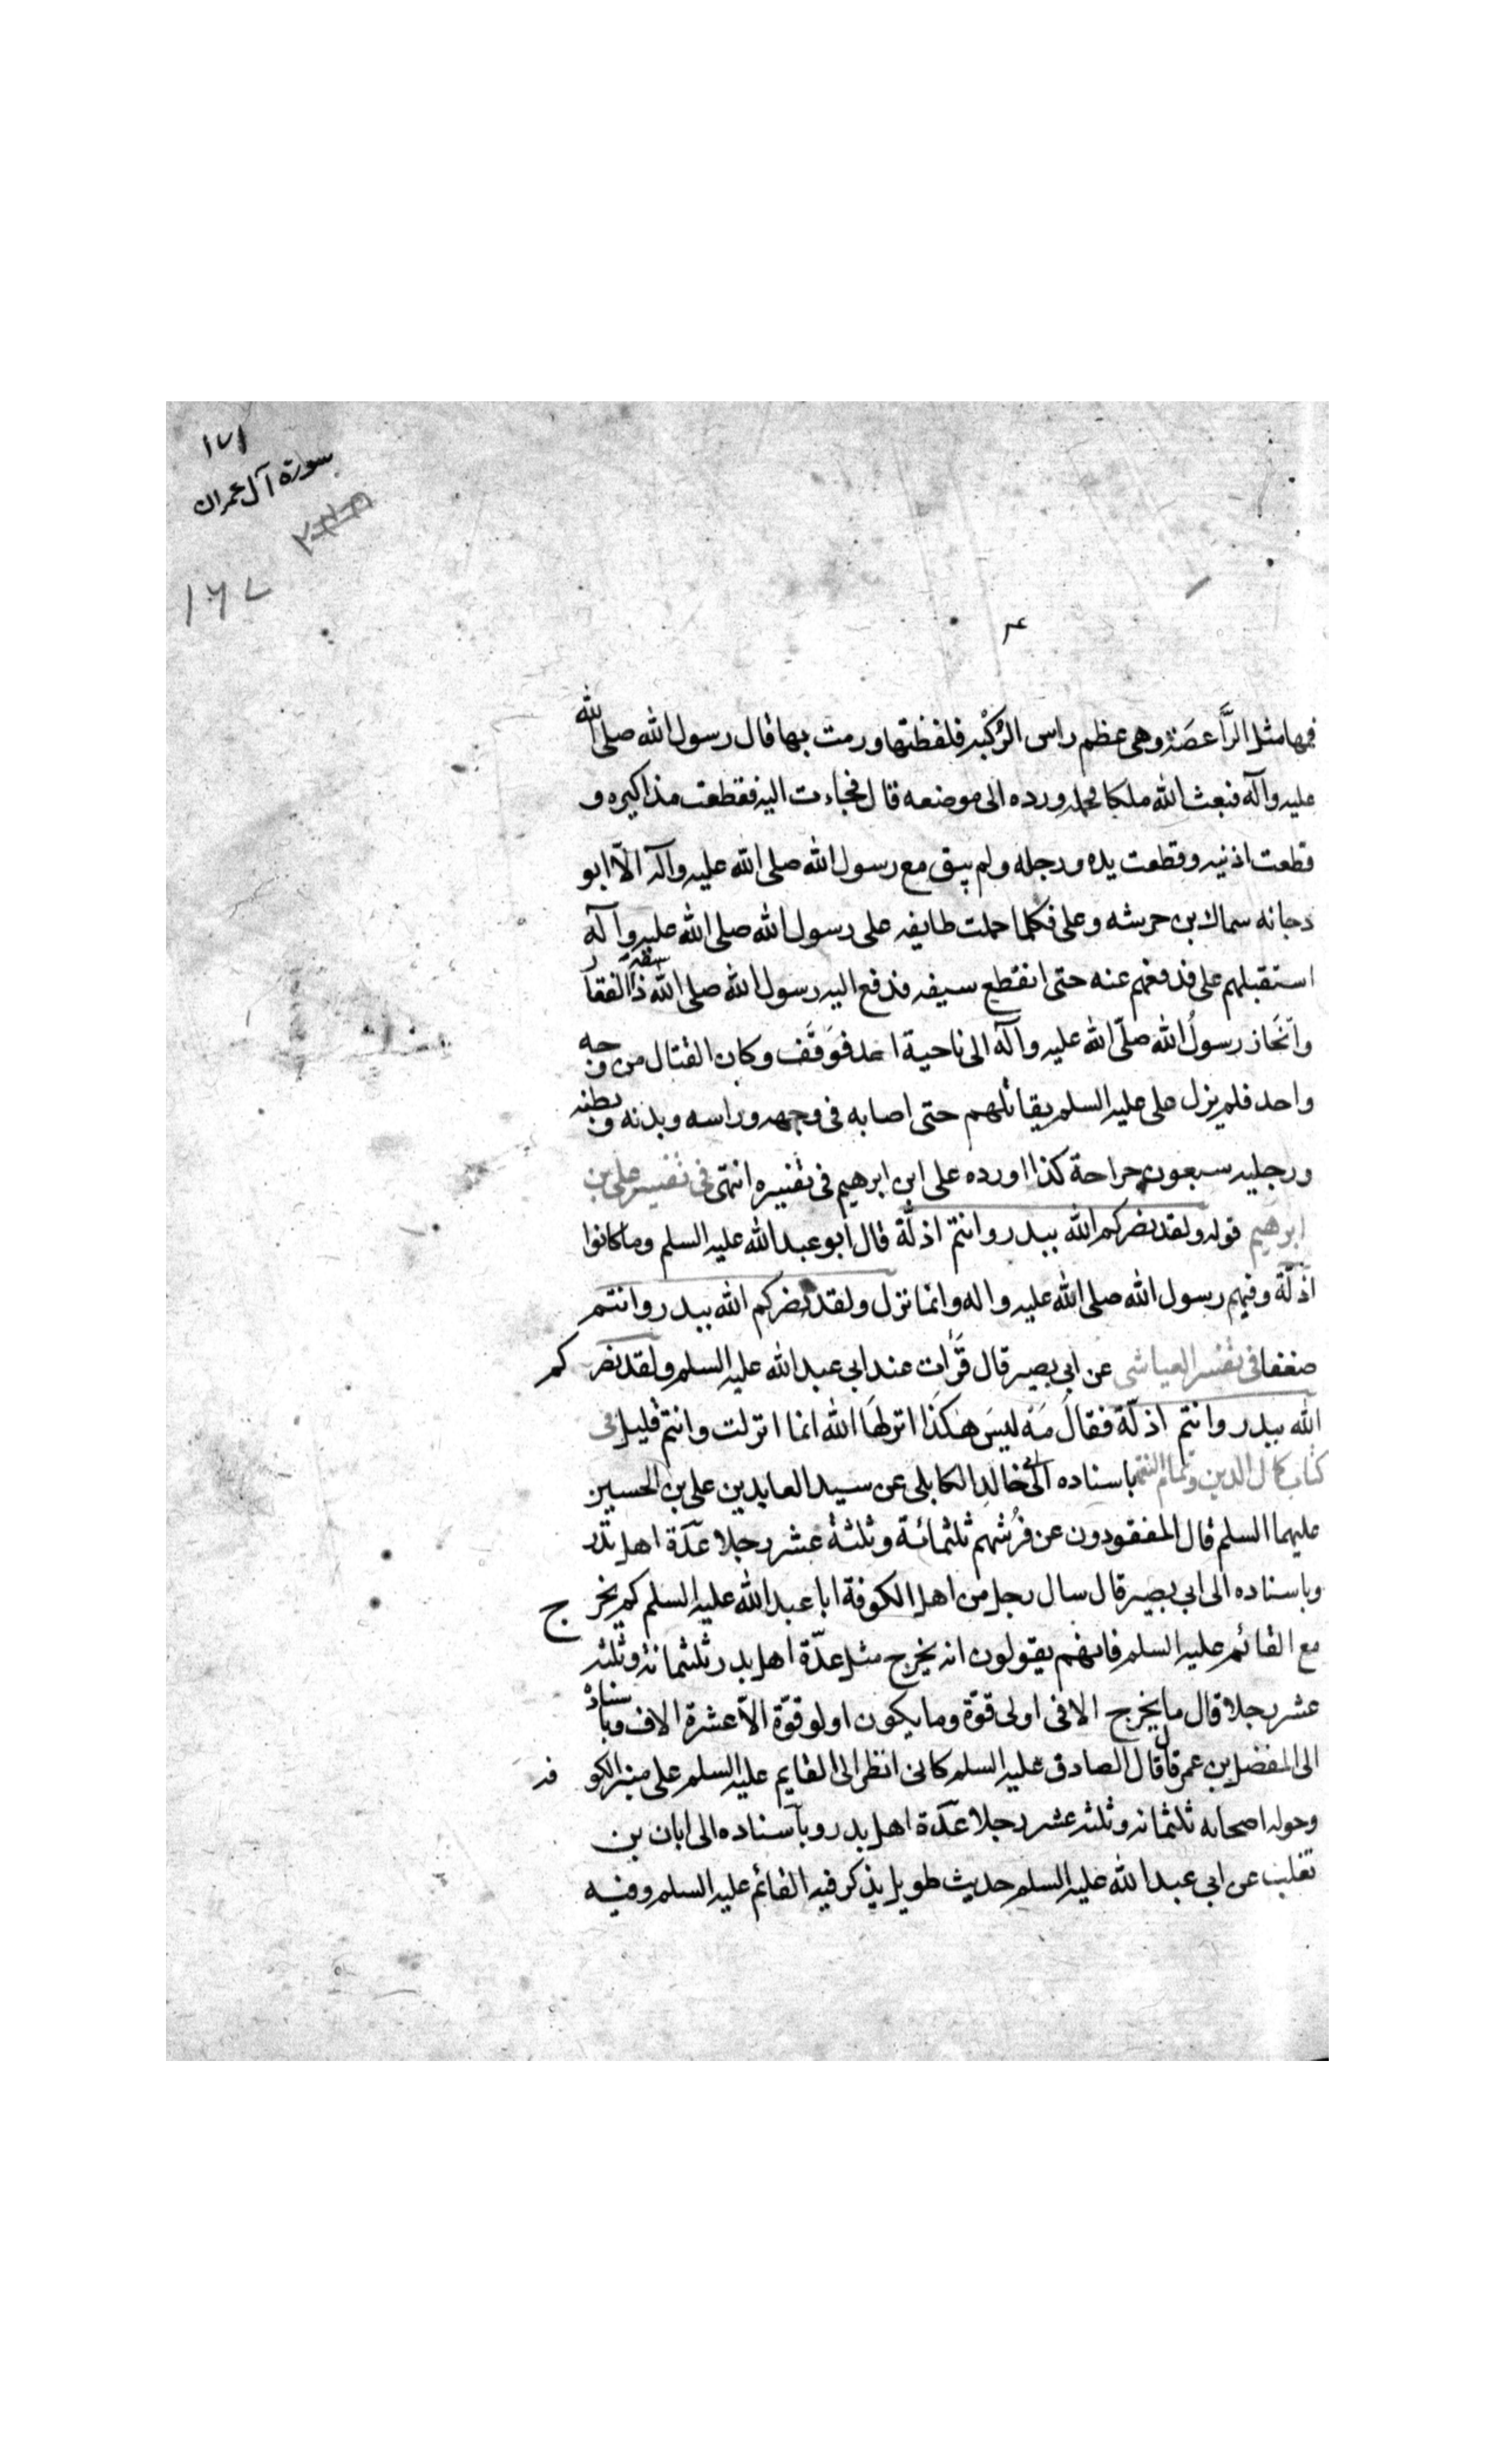 ١٧١
سورة آل عمران
١٦٧
فمها مثل الرَّاعصَة وهى عظم راس الرُكْبه فلفظتها ورمت بها قال رسول الله صلى الله
عليه وآله فبعث الله ملكا فحمله ورده الى موضعه قال فجاءت اليه فقطعت مذاكيره و
قطعت اذنيه وقطعت يده ورجله ولم يبق مع رسول الله صلى الله عليه وآله الّا ابو
دجانه سماك بن خرشه وعلى فكلما حملت طايفه على رسول الله صلى الله عليه وآله
استقبلهم على فدفعهم عنه حتى انقطع سيفه فدفع اليه رسول الله صلى الله سيفه ذا الفقار
وانحاز رسولُ الله صلّى الله عليه وآله الى ناحية احد فوَقَف وكان القتال من وجه
واحد فلم يزل على عليه السلم يقاتلهم حتى اصابه فى وجهه وراسه وبدنه وبطنه
ورجليه سبعون جراحة كذا اورده على ابن ابرهيم فى تفسيره انتهى فى تفسير على بن
ابرهيم قوله ولقد نصركم الله ببدر وانتم اذلّة قال ابو عبد الله عليه السلم وما كانوا
اذلّة وفيهم رسول الله صلى الله عليه واله وانما نزل ولقد نصركم الله ببدر وانتم
ضعفا فى تفسير العياشى عن ابى بصير قال قَرَأت عند ابى عبد الله عليه السلم ولقد نصركم
الله ببدر وانتم اذلّة فقالَ مَهْ ليسَ هكذَا انزلهَا الله انما انزلت وانتم قليل فى
كتاب كمال الدين وتمام النعمة باسناده الى ابى خالد الكابلى عن سيد العابدين على بن الحسين
عليهما السلم قال المفقودون عن فُرُشهم ثلثمائة وثلثة عشر رجلا عدّة اهل بدر
وباسناده الى ابى بصير قال سال رجل من اهل الكوفة ابا عبد الله عليه السلم كم يخرج
مع القائم عليه السلم فانهم يقولون انه يخرج مثل عدّة اهل بدر ثلثمائة وثلثه
عشر رجلا قال ما يخرج الا فى اولى قوّة وما يكون اولو قوّة الّا عشرة الاف وباسناده
الى المفضل بن عمر قال قال الصادق عليه السلم كانى انظر الى القايم عليه السلم على منبر الكوفه
وحوله اصحابه ثلثمائه وثلثه عشر رجلا عدّة اهل بدر وباسناده الى ابان بن
تغلب عن ابى عبد الله عليه السلم حديث طويل يذكر فيه القائم عليه السلم وفيه